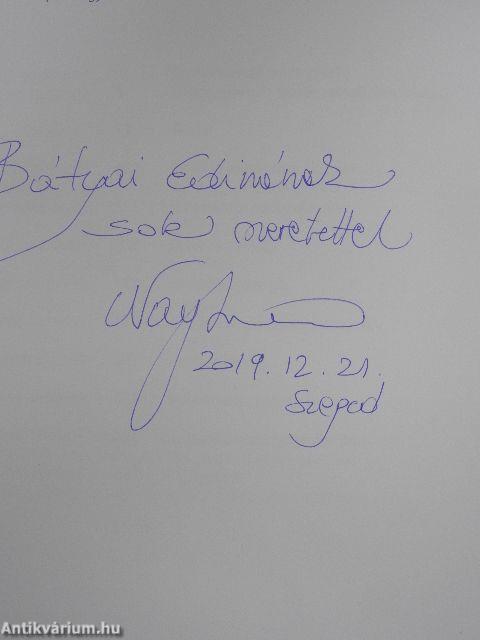 Bátyai Edinának
sok szeretettel
2019. 12. 21.
Szeged
Antikvárium.hu